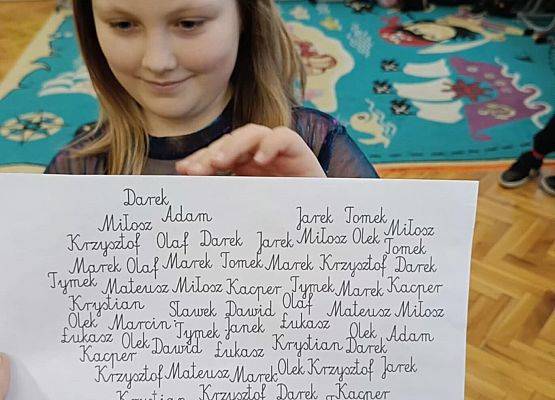 Darek
Miłosz Adam Jarek Tomek Miłosz
Krzysztof Olaf Darek Jarek Miłosz Olek Tomek
Marek Olaf Marek Tomek Marek Krzysztof Darek
Tymek Mateusz Miłosz Kacper Tymek Marek Kacper
Krystian Sławek Dawid Olaf Mateusz Miłosz
Olek Marcin Tymek Janek Łukasz Olek Adam
Łukasz Olek Dawid Łukasz Krystian Darek
Kacper
Krzysztof Mateusz Marek Olek Krzysztof Jarek
Krystian Krzysztof Darek Kacper